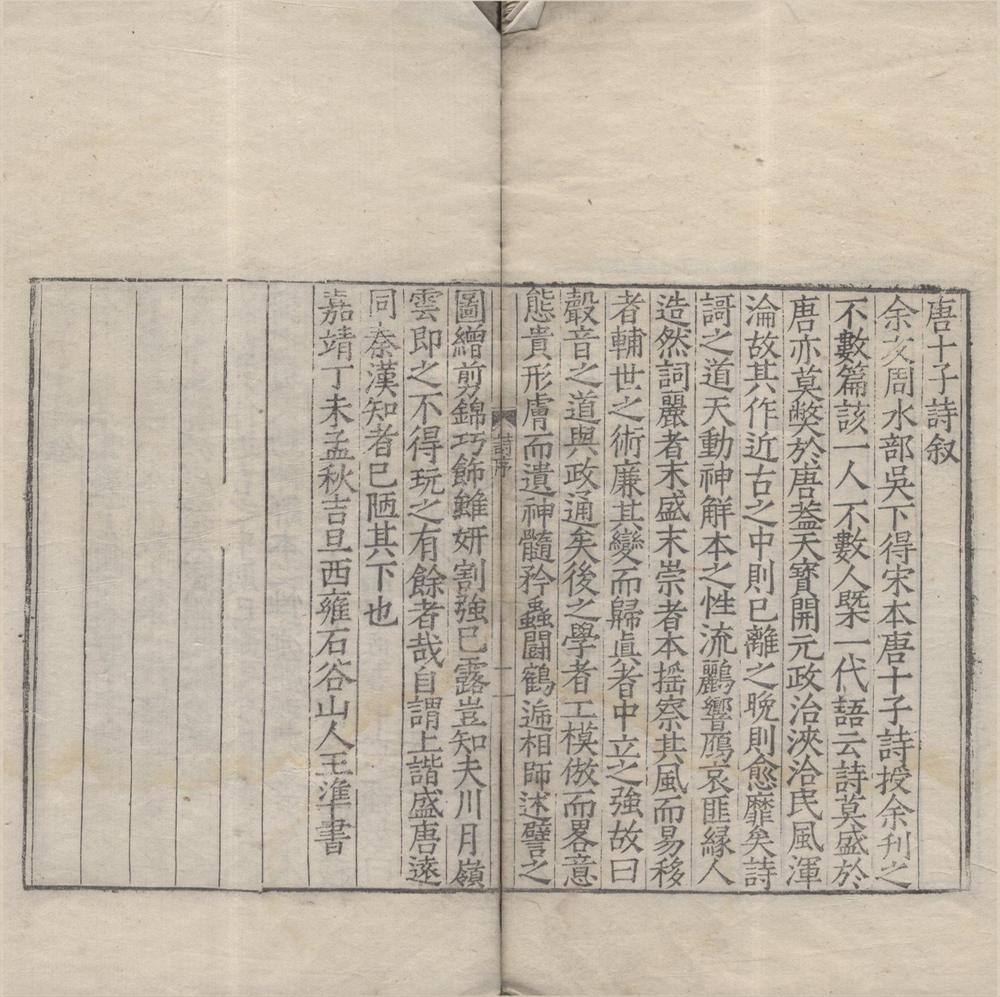 唐十子詩叙
余友周水部吳下得宋本唐十子詩授余刋之
不數篇該一人不數人槩一代語云詩莫盛於
唐亦莫獘於唐葢天寶開元政治浹洽民風渾
淪故其作近古之中則已離之晚則愈靡矣詩
謌之道天動神解本之性流鸝響鴈哀匪緣人
造然詞麗者末盛末崇者本揺察其風而易移
者輔世之術廉其變而歸眞者中立之強故曰
聲音之道與政通矣後之學者工模倣而畧意
態貴形膚而遺神髓矜蟲鬭鶴遞相師述譬之
詩序
一
圖繒剪錦巧飾雖妍割強已露豈知夫川月嶺
雲即之不得玩之有餘者哉自謂上諧盛唐遠
同秦漢知者已陋其下也
嘉靖丁未孟秋吉旦西雍石谷山人王準書